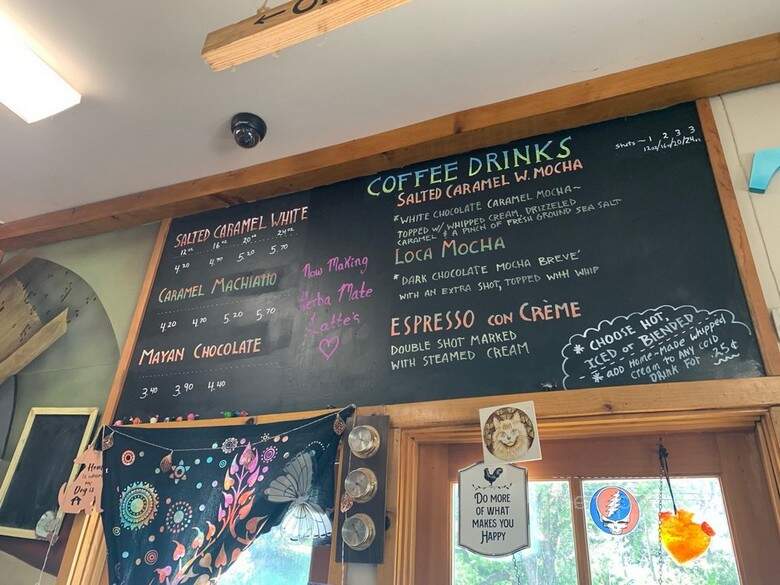 SALTED CARAMEL WHITE
12oz 16oz 20oz 24oz
4.20 4.90 5.20 5.70
CARAMEL MACHIATTO
4.20 4.70 5.20 5.70
MAYAN CHOCOLATE
3.40 3.90 4.40
Now Making
Yerba Mate
Latte's
COFFEE DRINKS
shots ~ 1 2 3 3
12oz/16oz/20/24oz
SALTED CARAMEL W. MOCHA
*WHITE CHOCOLATE CARAMEL MOCHA~
TOPPED W/ WHIPPED CREAM, DRIZZELED
CARAMEL & A PINCH OF FRESH GROUND SEA SALT
LOCA MOCHA
*DARK CHOCOLATE MOCHA BREVE'
WITH AN EXTRA SHOT, TOPPED WITH WHIP
ESPRESSO CON CRÈME
DOUBLE SHOT MARKED
WITH STEAMED CREAM
* CHOOSE HOT,
ICED OR BLENDED
* ADD HOME-MADE whipped
cream TO ANY COLD
DRINK FOR 25¢
Home
is where
my
Dog is
DO MORE
OF WHAT
MAKES YOU
HAPPY